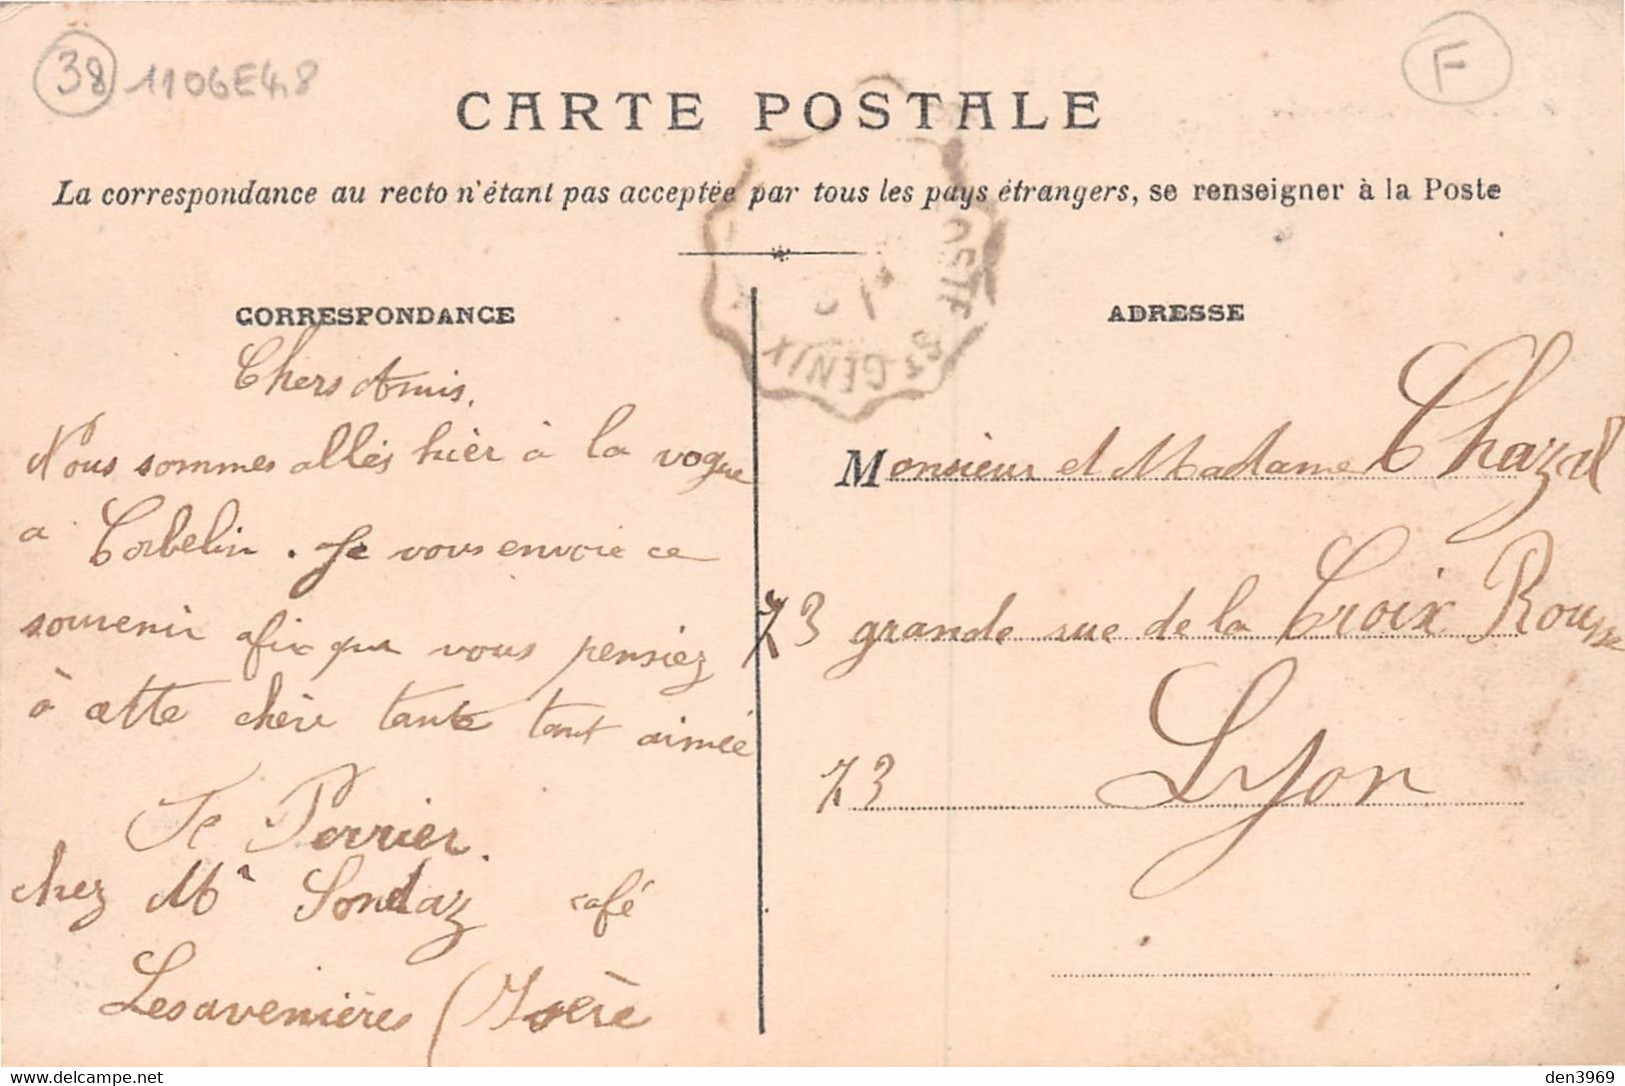 38 1106E48
F
CARTE POSTALE
La correspondance au recto n'étant pas acceptée par tous les pays étrangers, se renseigner à la Poste
CORRESPONDANCE
Chers Amis.
Nous sommes allés hièr à la vogue
a Corbelin. Je vous envoie ce
souvenir afin que vous pensiez
à cette chère tante tant aimée
Perrier.
chez Mr Sondaz café
Lesavenières (Isère
ADRESSE
Monsieur et Madame Chazal
73 grande rue de la Croix Rousse
73 Lyon
ST GENIX
den3969